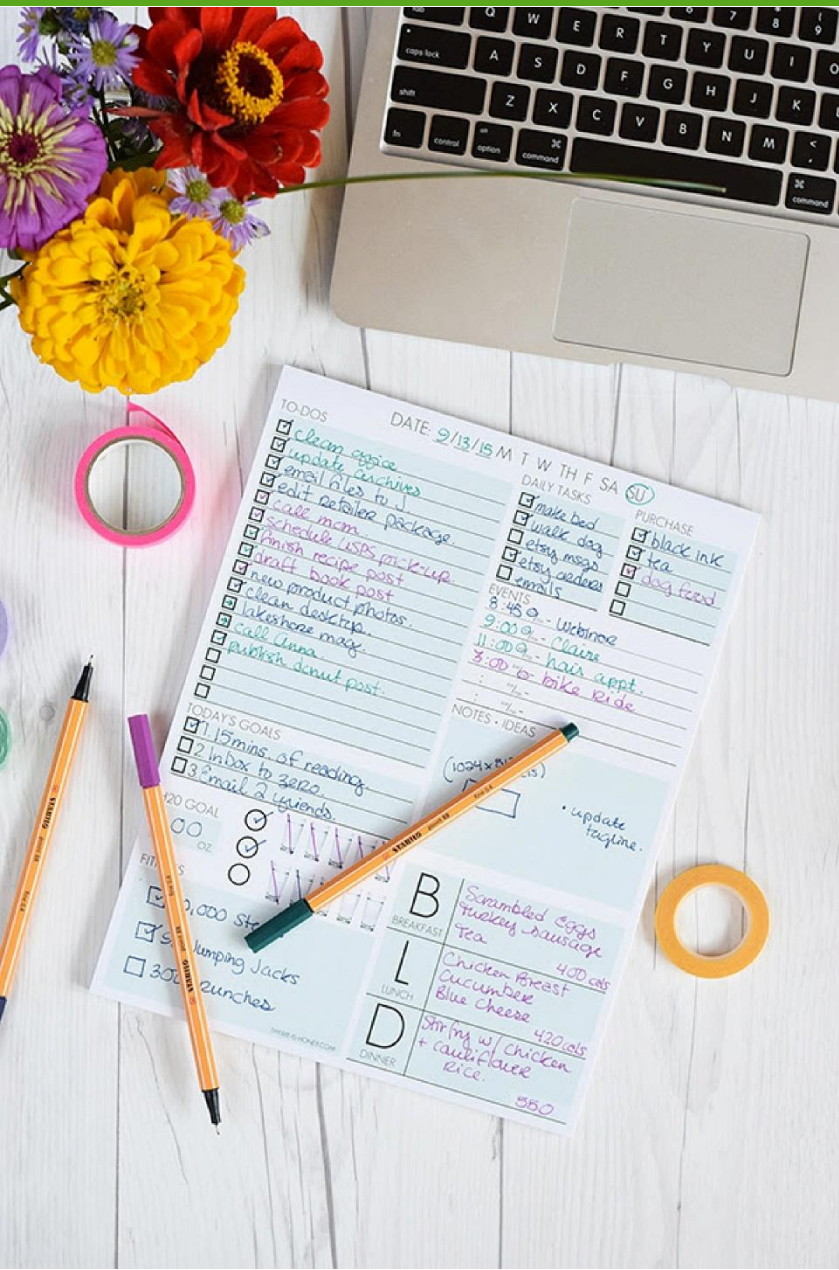 tab
Q W E R T Y U I
6 7 8 9
caps lock A S D F G H J K
shift Z X C V B N M < ,
fn control alt option ⌘ command ⌘ command
TO-DOS
DATE: 9/13/15 M T W TH F SA SU
clean office
update archives
email files to J.
edit retailer package.
call mom.
schedule USPS pick-up.
finish recipe post
draft book post
new product photos.
clean desktop.
lakeshore mag.
call Anna.
publish donut post.
DAILY TASKS
make bed
walk dog
etsy msgs
etsy orders
emails
PURCHASE
black ink
tea
dog food
EVENTS
8:45 a - Webinar
9:00 a - Claire
11:00 a - hair appt.
3:00 p - bike ride
TODAY'S GOALS
1. 15 mins. of reading.
2. Inbox to zero.
3. Email 2 friends.
NOTES • IDEAS
(1024 x
• update
tagline.
H20 GOAL
00
OZ
FIT
0,000 Ste
Jumping Jacks
300 crunches
B
BREAKFAST
Scrambled eggs
Turkey sausage
Tea
400 cals
L
LUNCH
Chicken Breast
Cucumber
Blue Cheese
420 cals
D
DINNER
Stir fry w/ chicken
+ cauliflower
rice.
550
STABILO
STABILO
STABILO